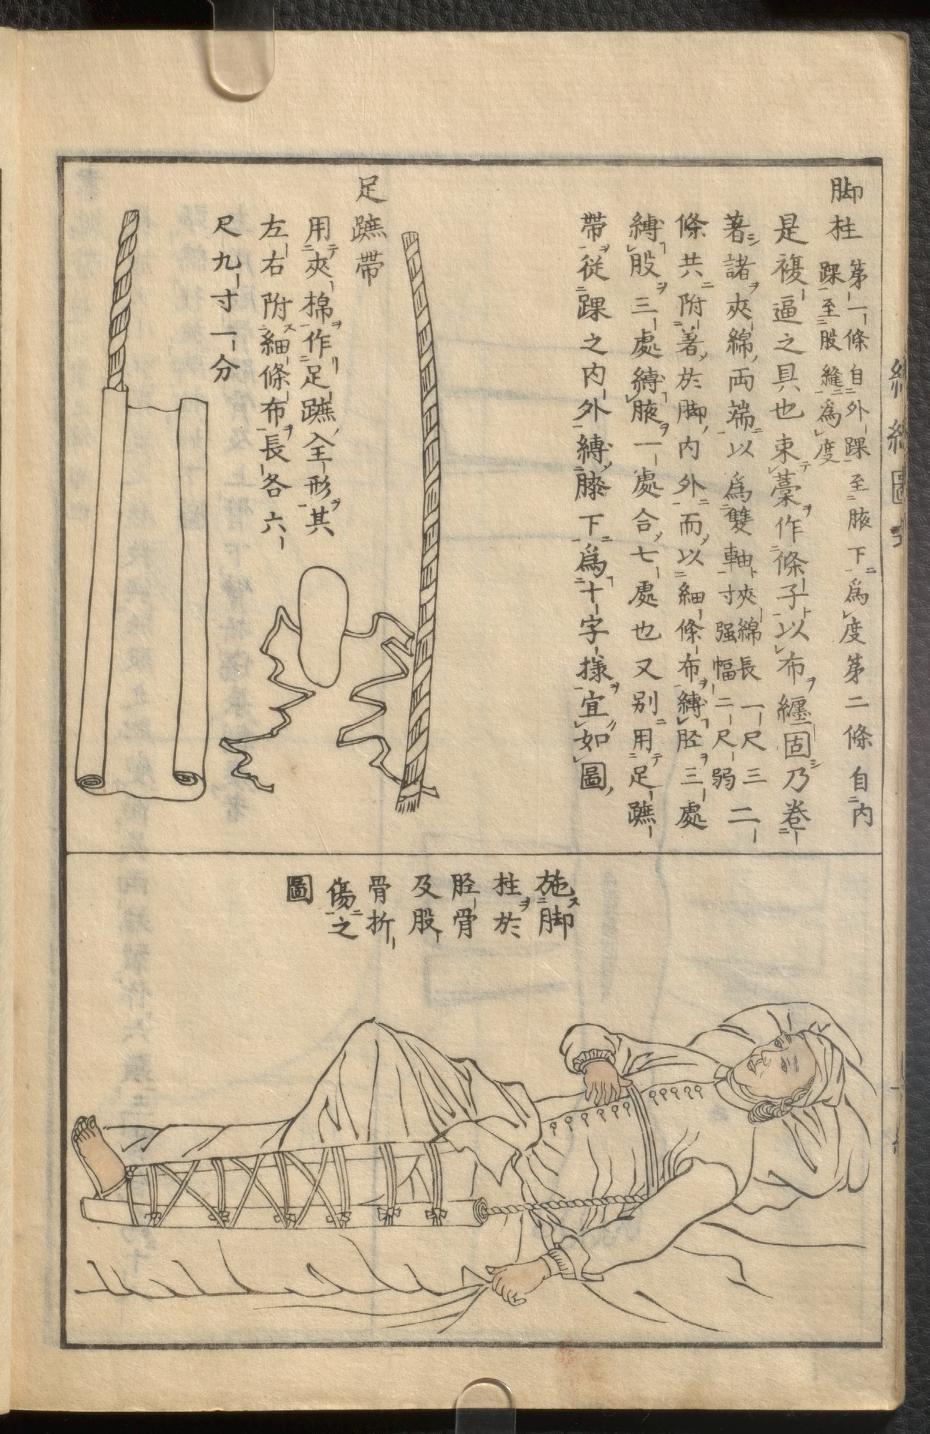 脚柱 第一條自外踝至腋下爲度第二條自内
踝至股縫爲度
是複逼之具也束藁作條子以布纏固乃卷
著諸夾綿兩端以爲雙軸 夾綿長一尺三
寸强幅二尺弱 二
條共附著於脚内外而以細條布縛胫三處
縛股三處縛腋一處合七處也又別用足蹠
帶從踝之内外縛膝下爲十字樣宜如圖
足蹠帶
用夾棉作足蹠全形其
左右附細條布長各六
尺九寸一分
施脚
柱於
胫骨
及股
骨折
傷之
圖